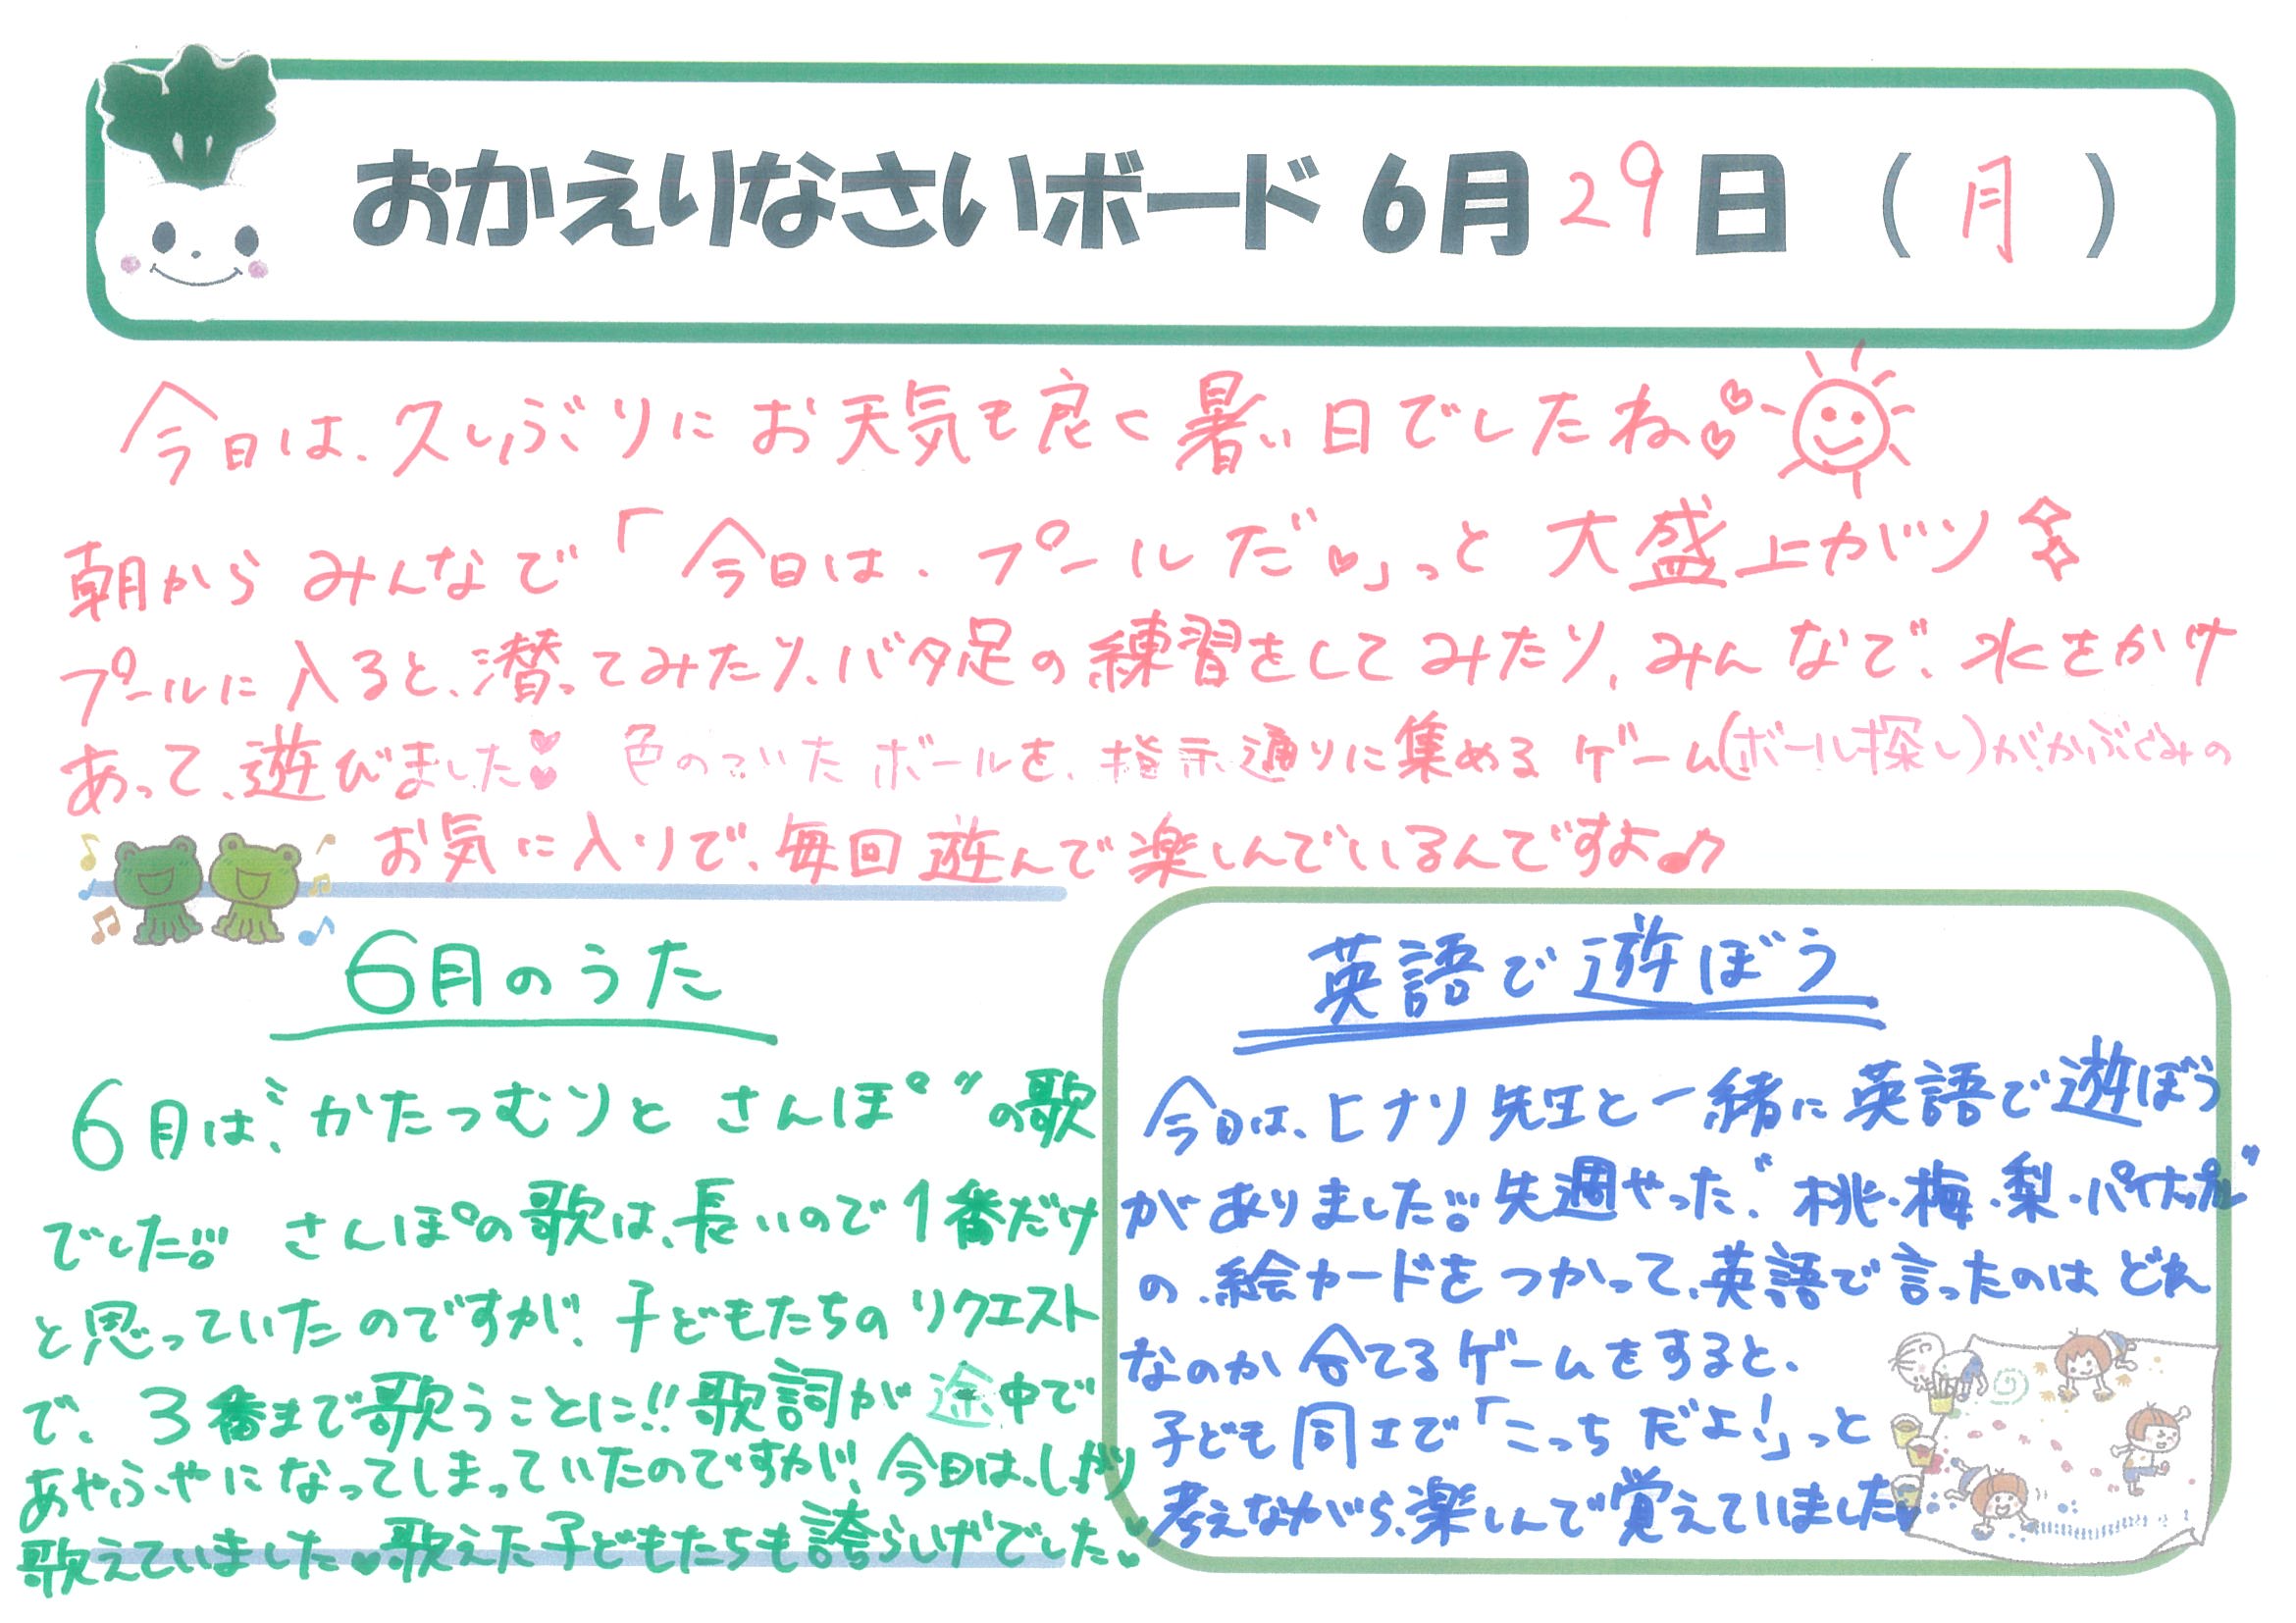 おかえりなさいボード 6月29日（月）
今日は、久しぶりにお天気も良く暑い日でしたね♡
朝からみんなで「今日は、プールだ♡」っと大盛上がり
プールに入ると、潜ってみたり、バタ足の練習をしてみたり、みんなで、水をかけ
あって、遊びました♥ 色のついたボールを、指示通りに集めるゲーム(ボール探し)がかぶぐみの
お気に入りで、毎回遊んで楽しんでいるんですよ♪
6月のうた
6月は、〝かたつむりとさんぽ〟の歌
でした!! さんぽの歌は、長いので1番だけ
と思っていたのですが、子どもたちのリクエスト
で、3番まで歌うことに!! 歌詞が途中で
あやふやになってしまっていたのですが、今日は、しっかり
歌えていました♥歌えた子どもたちも誇らしげでした♥
英語で遊ぼう
今日は、ヒナリ先生と一緒に英語で遊ぼう
がありました!! 先週やった〝桃・梅・梨・パイナップル〟
の絵カードをつかって、英語で言ったのはどれ
なのか合てるゲームをすると、
子ども同士で「こっちだよ!」っと
考えながら、楽しんで覚えていました♥